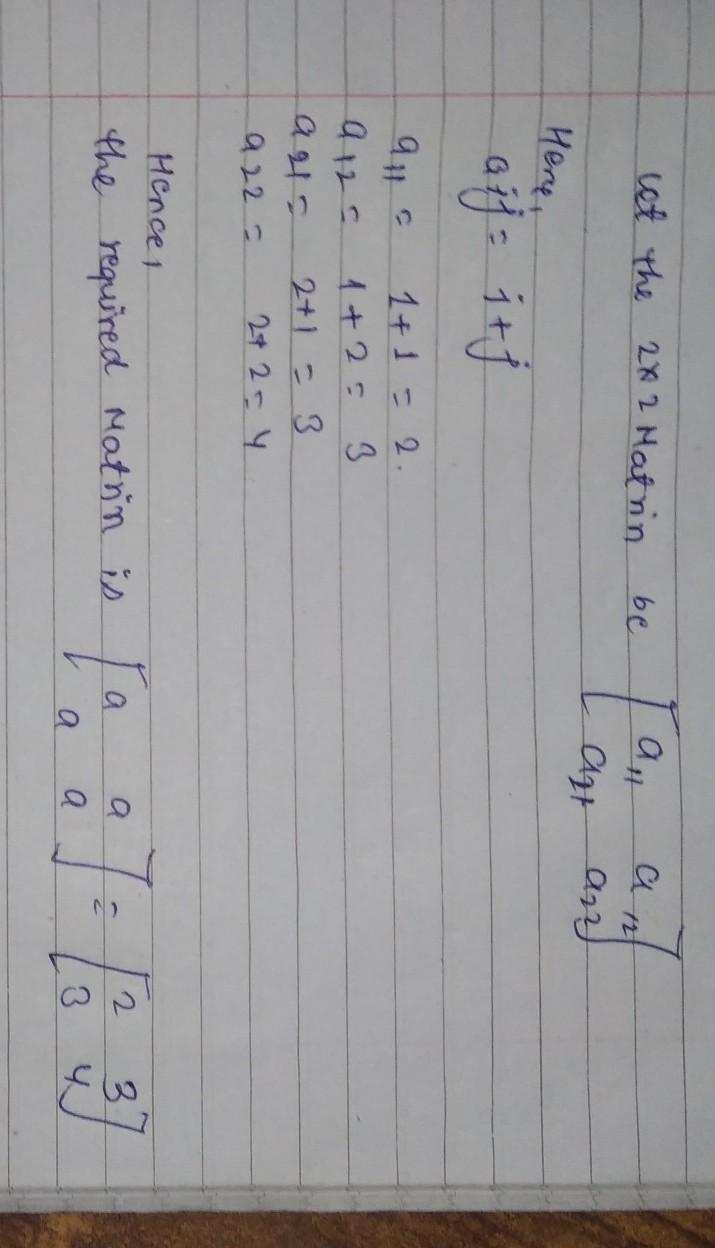 Let the 2×2 Matrin be [a11 a12
a21 a22]
Here,
aij = i+j
a11 = 1+1 = 2.
a12 = 1+2 = 3
a21 = 2+1 = 3
a22 = 2+2 = 4
Hence,
the required Matrin is [a a
a a] = [2 3
3 4]